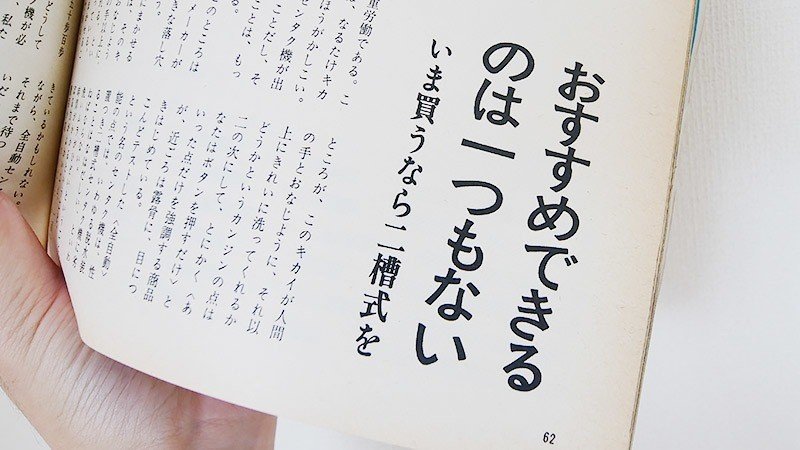 おすすめできる
のは一つもない
いま買うなら二槽式を
重労働である。こ
、なるたけキカ
ほうがかしこい。
ンタク機が出
ことだし、そ
ことは、もっ
る。
このところは
メーカーが
きな落し穴
う。
まかせる
ところが、このキカイが人間
の手とおなじように、それ以
上にきれいに洗ってくれるか
どうかというカンジンの点は
二の次にして、とにかく〈あ
なたはボタンを押すだけ〉と
いった点だけを強調する商品
が、近ごろは露骨に、目につ
きはじめている。
こんどテストした〈全自動〉
という名のセンタク機は、性
能の点では、
62
どうして
機が必
、私た
きているかもしれない。
ながら、全自動セン
それまで待つ
いだ